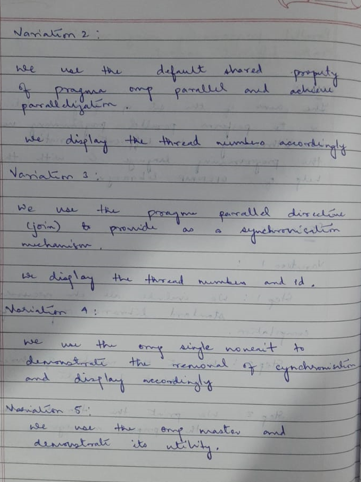 Variation 2 :
We use the default shared property
of pragma omp parallel and achieve
parallelization.
We display the thread numbers accordingly
Variation 3 :
We use the pragma parallel directive
(join) to provide as a synchronisation
mechanism.
We display the thread numbers and id.
Variation 4 :
We use the omp single nowait to
demonstrate the removal of synchronisation
and display accordingly
Variation 5 :
We use the omp master and
demonstrate its utility.